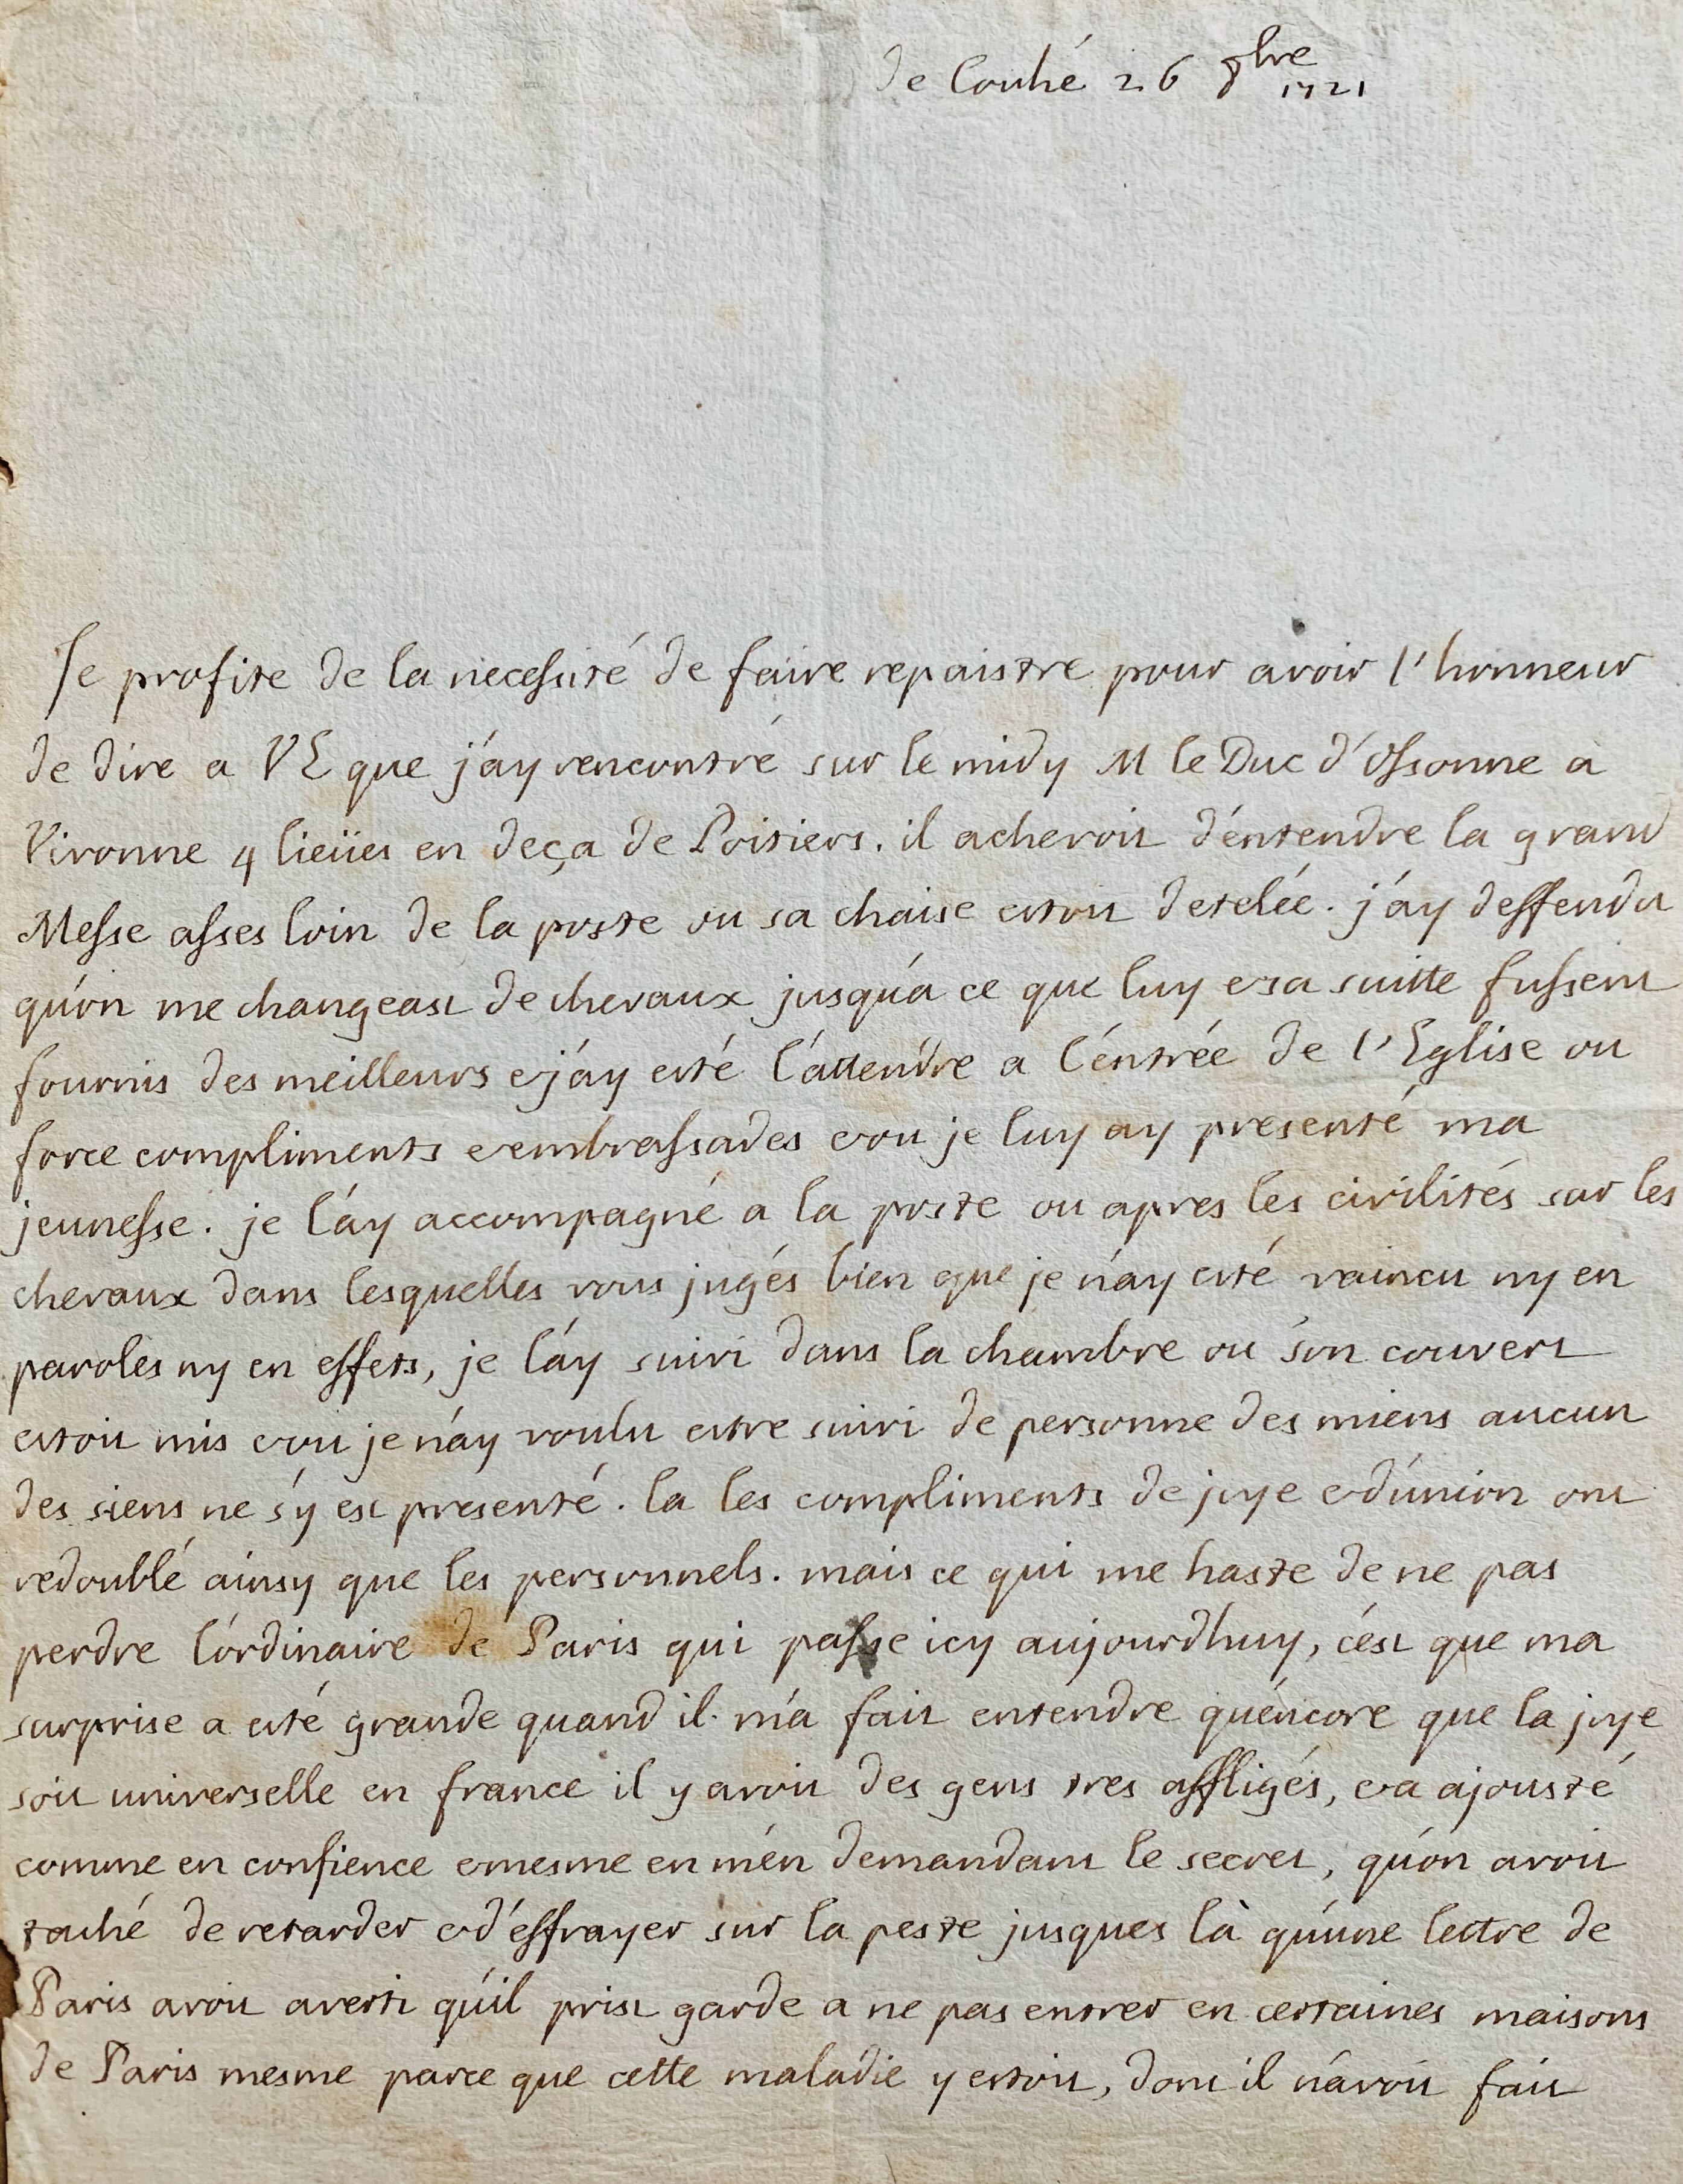 de Couhé 26 8bre 1721
Je profite de la necessité de faire repaistre pour avoir l'honneur
de dire a VE que j'ay rencontré sur le midy M le Duc d'Ossonne a
Vivonne 4 lieües en deça de Poitiers. il achevoit d'entendre la grand
Messe asses loin de la poste ou sa chaise estoit detelée. j'ay deffendu
qu'on me changeast de chevaux jusqu'a ce que luy et sa suitte fussent
fournis des meilleurs et j'ay esté l'attendre a l'entrée de l'Eglise ou
force compliments et embrassades et ou je luy ay presenté ma
jeunesse. je l'ay accompagné a la poste ou apres les civilités sur les
chevaux dans lesquelles vous jugés bien que je n'ay esté vaincu ny en
paroles ny en effets, je l'ay suivi dans la chambre ou son couvert
estoit mis et ou je n'ay voulu estre suivi de personne des miens aucun
des siens ne s'y est presenté. la les compliments de joye et d'union ont
redoublé ainsy que les personnels. mais ce qui me haste de ne pas
perdre l'ordinaire de Paris qui passe icy aujourdhuy, c'est que ma
surprise a esté grande quand il m'a fait entendre qu'encore que la joye
soit universelle en france il y avoit des gens tres affligés, et a ajousté
comme en confience et mesme en m'en demandant le secret, qu'on avoit
taché de retarder et d'effrayer sur la peste jusques là qu'une lettre de
Paris avoit averti qu'il prist garde a ne pas entrer en certaines maisons
de Paris mesme parce que cette maladie y estoit, dont il n'avoit fait